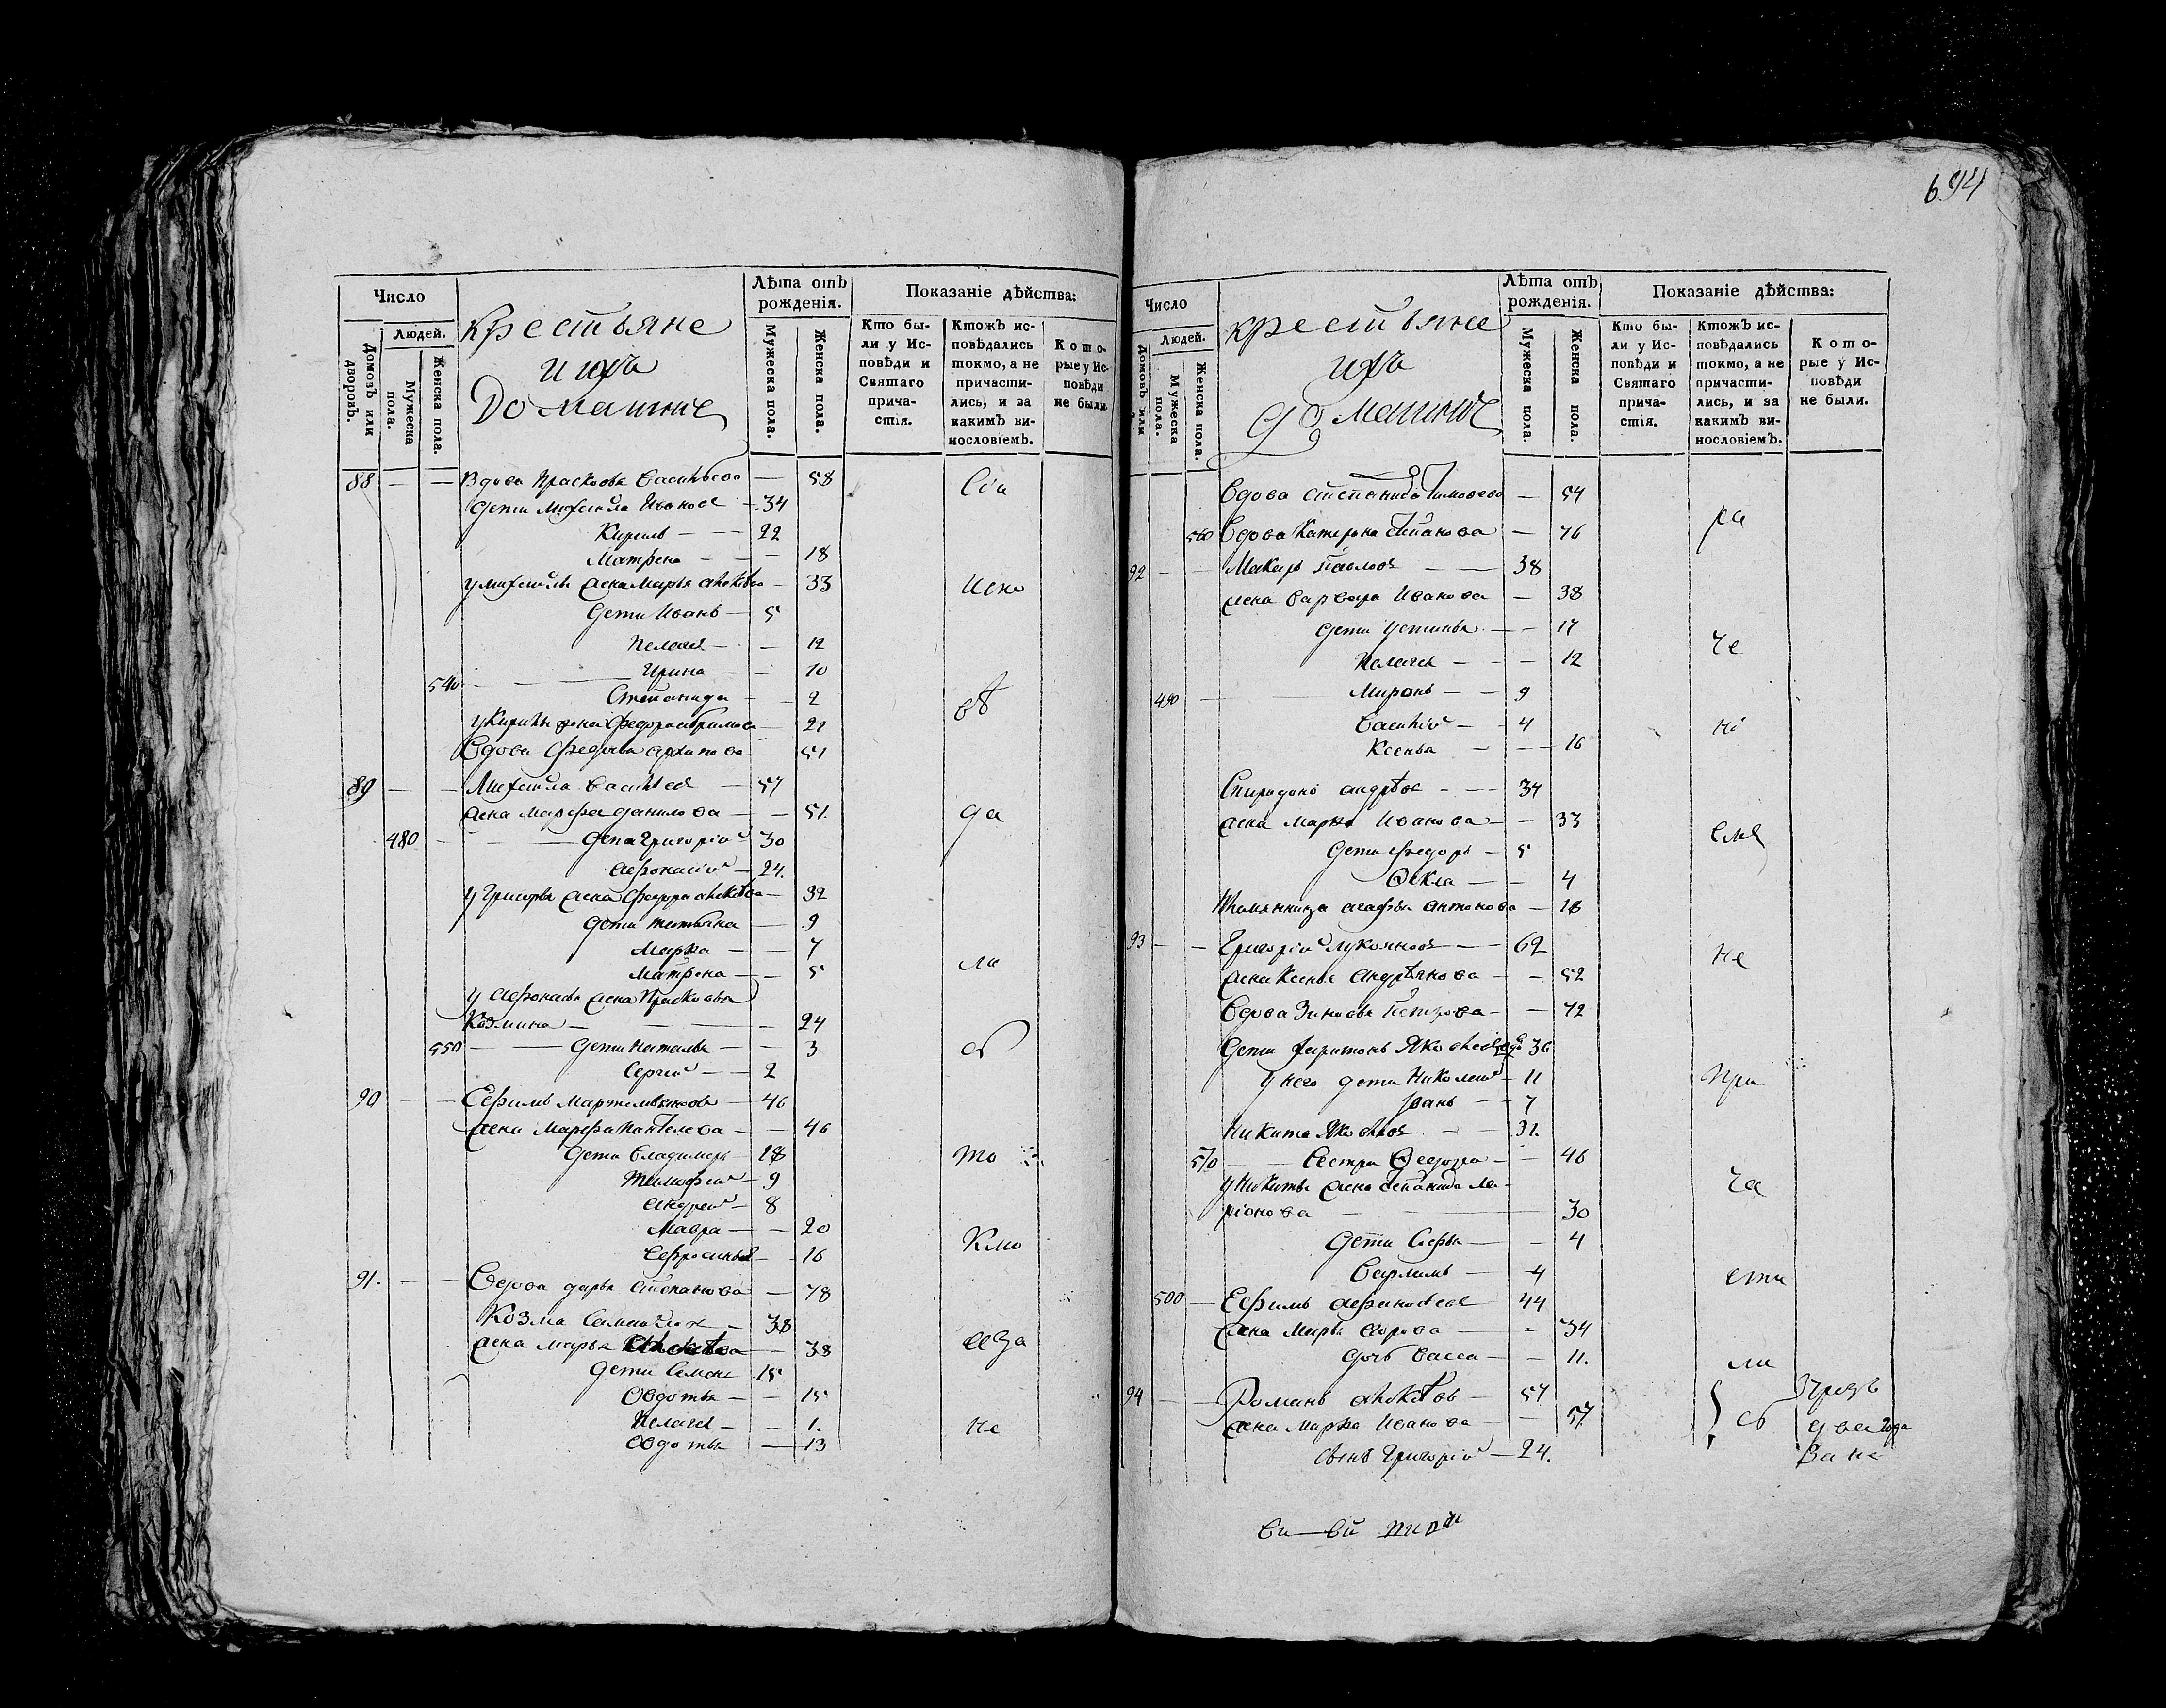 694
Число
Людей.
Домовъ или дворовъ.
Мужеска пола.
Женска пола.
крестьяне
и ихъ
Домашнiе
Лѣта отъ рожденія.
Мужеска пола.
Женска пола.
Показаніе дѣйства:
Кто были у Исповѣди и Святаго причастія.
Ктожъ исповѣдались токмо, а не причастились, и за какимъ винословіемъ.
Которые у Исповѣди не были.
88 — — Вдова Прасковья Васильева — 58
дети Михайла Иванов — 34
Кирилъ — — 22
Матрена — — — 18
у Михайлы жена Марья — 33
Дети Иванъ — 5
Пелагея — — 12
Ирина — — 10
540
Степанида — — 2
у Кирилы жена Федора — 21
Вдова Федосья Архипова 51
Испо
вѣ
89 — — Михайла Васильев — 57
жена Марфа Данилова — — 51.
да
480 — — Дети Григорiй 30
Афонасiй — 24.
у Григорья жена Федора — 32
Дети Татьяна — 9
Марья — — 7
Матрена — — 5
ли
у Афонасья жена Прасковья
Козмина — — — — 24
550 — — Дети Наталья — — 3
Сергей — — 2
сь
90 — — Ефимъ — 46
жена Марфа Пантелева — — 46
Дети Владимеръ — 18
Тимофей — 9
Андрей — 8
Мавра — — 20
Ефросинья — — 16
то
Кмо
91. — — Вдова Дарья Степанова — 78
Козма — 38
жена Марья — 38
Дети Семенъ 15
Овдотья — — 15
Пелагея — — 1.
Овдотья — 13
аза
не
Число
Людей.
Домовъ или
Мужеска пола.
Женска пола.
крестьяне
ихъ
домашнiе
Лѣта отъ рожденія.
Мужеска пола.
Женска пола.
Показаніе дѣйства:
Кто были у Исповѣди и Святаго причастія.
Ктожъ исповѣдались токмо, а не причастились, и за какимъ винословіемъ.
Которые у Исповѣди не были.
Вдова Степанида Тимофеева — 54
560 Вдова Катерина Степанова — 76
ра
92 — — Макаръ Павловъ — — 38
жена Варвара Иванова — 38
Дети Устинья — — 17
Пелагея — — — 12
че
490 — Миронъ — — 9
Василiй — 4
Ксенья — — — 16
нi
Спиридонъ Андрѣев — — 34
жена Марья Иванова — — 33
Дети Федоръ — 5
Ѳекла — — 4
Племянница Агафья Антонова — 18
емъ
93 — — Григорiй Лукояновъ — — 62
жена Ксенья Андрѣянова — — 52
не
Вдова Зиновья Петрова — — 72
Дети Харитонъ 36
у него дети Николай — 11
Iванъ — — 7
Никита Яковлев — — 31.
при
570 — — Сестра Ѳедора — — 46
у Никиты жена Степанида Ла-
рiонова — — — 30
ча
Дети Софья — — 4
Варламъ — 4
сти
500 — Ефимъ 44
жена Марья — — 34
дочь Васса — — 11.
ли
94 — — Романъ — 57
жена Марья Иванова — — 57
сынъ Григорiй — 24.
сь
Чрезъ
два года